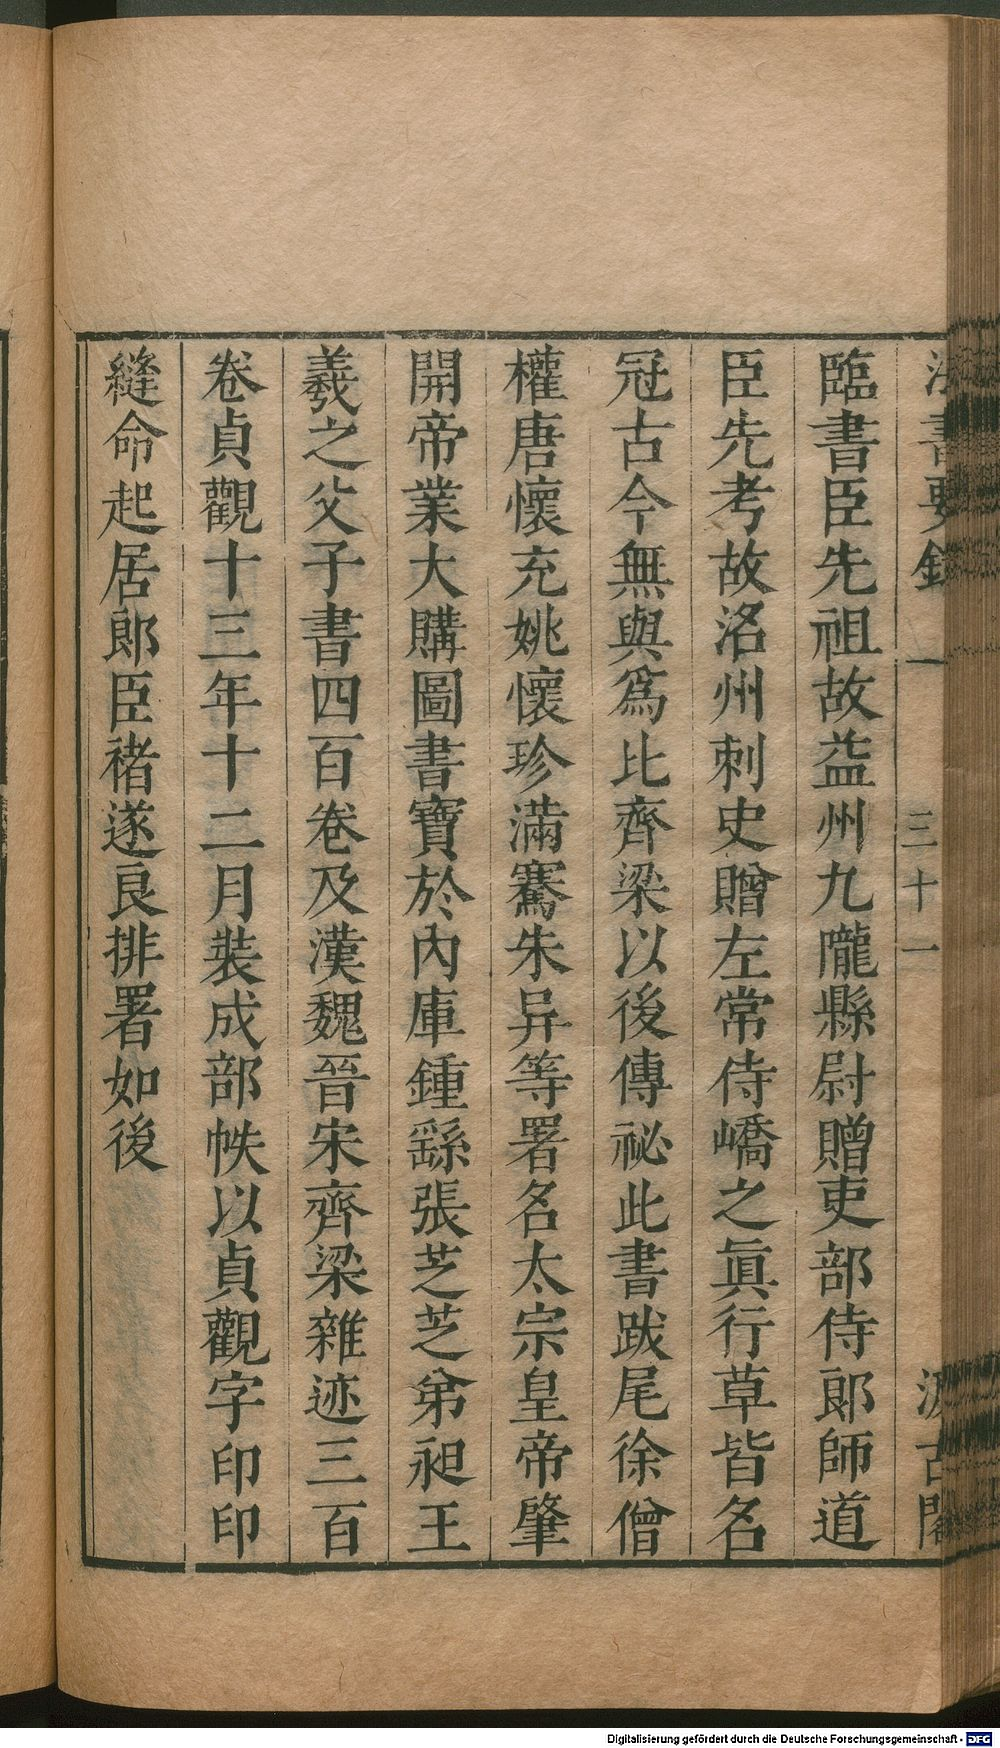 法書要錄 一 三十一 汲古閣
臨書臣先祖故益州九隴縣尉贈吏部侍郎師道
臣先考故洺州刺史贈左常侍嶠之眞行草皆名
冠古今無與爲比齊梁以後傳祕此書跋尾徐僧
權唐懷充姚懷珍滿騫朱异等署名太宗皇帝肇
開帝業大購圖書寶於內庫鍾繇張芝芝弟昶王
羲之父子書四百卷及漢魏晉宋齊梁雜迹三百
卷貞觀十三年十二月裝成部帙以貞觀字印印
縫命起居郎臣褚遂良排署如後
Digitalisierung gefördert durch die Deutsche Forschungsgemeinschaft - DFG